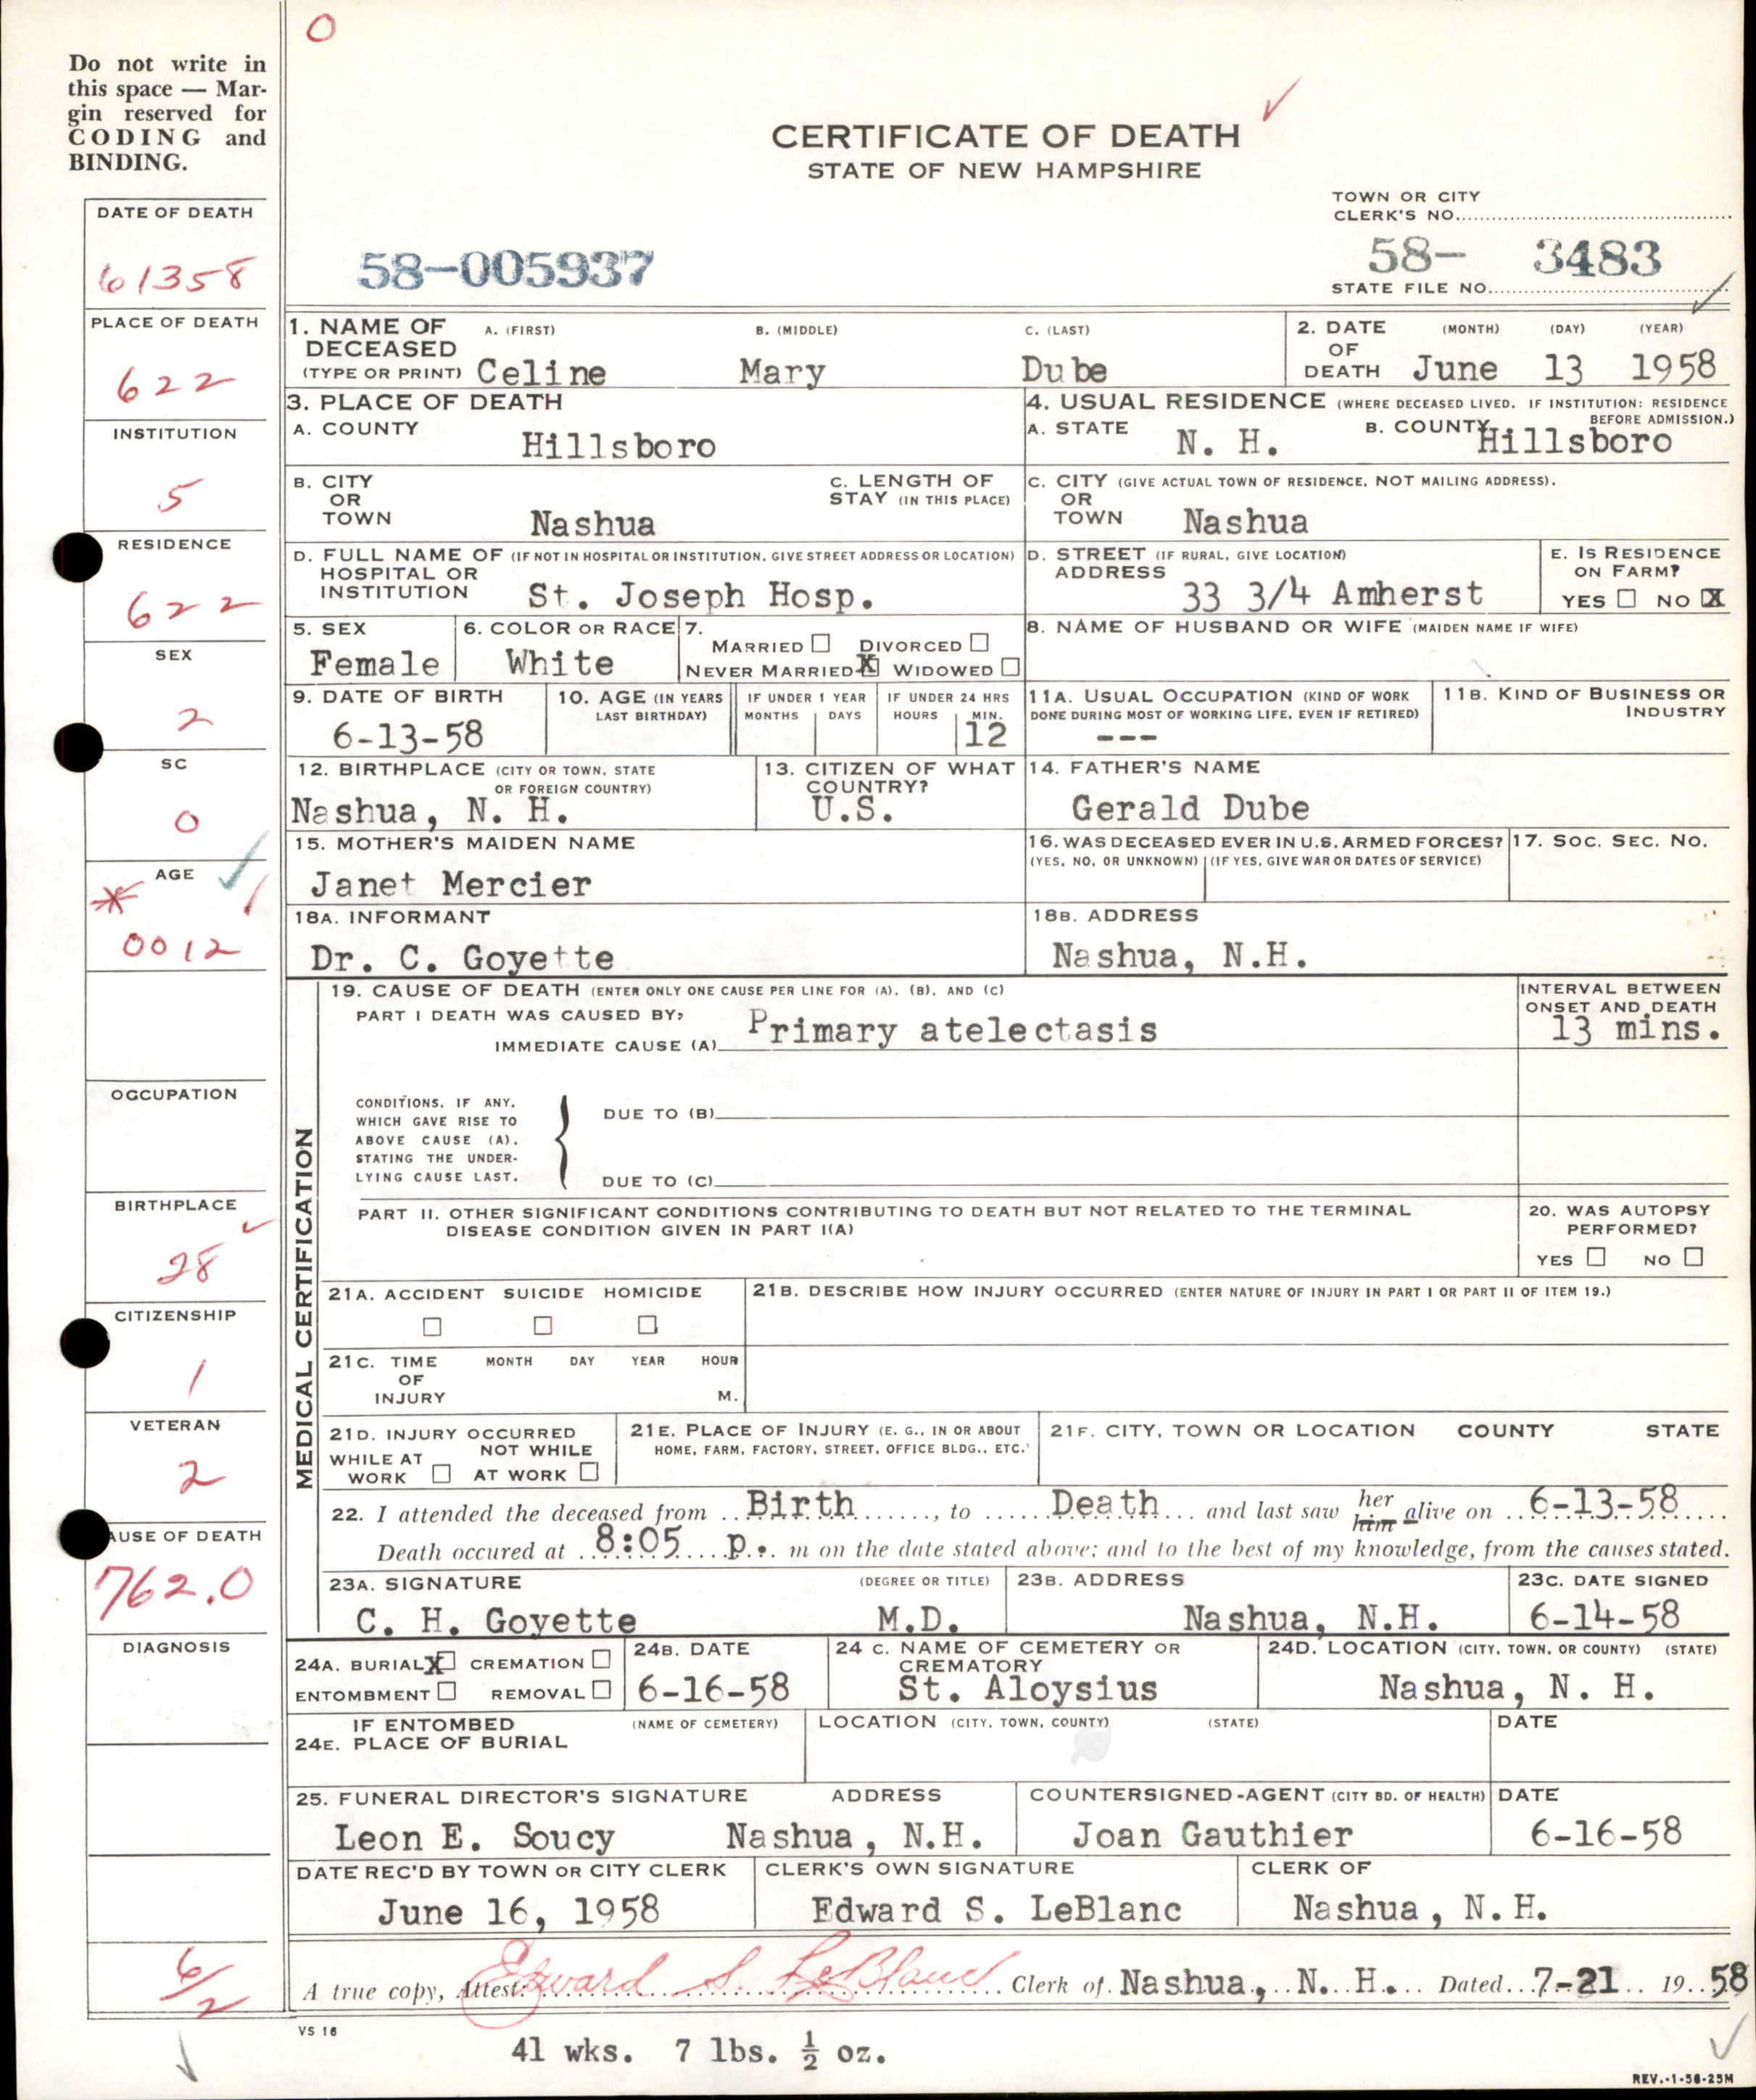 O
Do not write in
this space — Mar-
gin reserved for
CODING and
BINDING.
CERTIFICATE OF DEATH
STATE OF NEW HAMPSHIRE
TOWN OR CITY
CLERK'S NO.
58-005937
58- 3483
STATE FILE NO.
DATE OF DEATH
61358
PLACE OF DEATH
622
INSTITUTION
5
RESIDENCE
622
SEX
2
SC
0
AGE
0012
OCCUPATION
BIRTHPLACE
28
CITIZENSHIP
1
VETERAN
2
AUSE OF DEATH
762.0
DIAGNOSIS
6/2
1. NAME OF DECEASED (TYPE OR PRINT) A. (FIRST) B. (MIDDLE) C. (LAST)
Celine Mary Dube
2. DATE OF DEATH (MONTH) (DAY) (YEAR)
June 13 1958
3. PLACE OF DEATH
A. COUNTY
Hillsboro
4. USUAL RESIDENCE (WHERE DECEASED LIVED. IF INSTITUTION: RESIDENCE BEFORE ADMISSION.)
A. STATE N. H. B. COUNTY Hillsboro
B. CITY OR TOWN Nashua
C. LENGTH OF STAY (IN THIS PLACE)
C. CITY (GIVE ACTUAL TOWN OF RESIDENCE, NOT MAILING ADDRESS).
OR TOWN Nashua
D. FULL NAME OF (IF NOT IN HOSPITAL OR INSTITUTION, GIVE STREET ADDRESS OR LOCATION)
HOSPITAL OR INSTITUTION St. Joseph Hosp.
D. STREET (IF RURAL, GIVE LOCATION)
ADDRESS 33 3/4 Amherst
E. IS RESIDENCE ON FARM?
YES NO X
5. SEX
Female
6. COLOR OR RACE
White
7. MARRIED DIVORCED
NEVER MARRIED X WIDOWED
8. NAME OF HUSBAND OR WIFE (MAIDEN NAME IF WIFE)
9. DATE OF BIRTH
6-13-58
10. AGE (IN YEARS LAST BIRTHDAY)
IF UNDER 1 YEAR
MONTHS DAYS
IF UNDER 24 HRS
HOURS MIN.
12
11A. USUAL OCCUPATION (KIND OF WORK DONE DURING MOST OF WORKING LIFE, EVEN IF RETIRED)
---
11B. KIND OF BUSINESS OR INDUSTRY
12. BIRTHPLACE (CITY OR TOWN, STATE OR FOREIGN COUNTRY)
Nashua, N. H.
13. CITIZEN OF WHAT COUNTRY?
U.S.
14. FATHER'S NAME
Gerald Dube
15. MOTHER'S MAIDEN NAME
Janet Mercier
16. WAS DECEASED EVER IN U.S. ARMED FORCES?
(YES, NO, OR UNKNOWN) (IF YES, GIVE WAR OR DATES OF SERVICE)
17. SOC. SEC. NO.
18A. INFORMANT
Dr. C. Goyette
18B. ADDRESS
Nashua, N.H.
MEDICAL CERTIFICATION
19. CAUSE OF DEATH (ENTER ONLY ONE CAUSE PER LINE FOR (A), (B), AND (C)
PART I DEATH WAS CAUSED BY:
IMMEDIATE CAUSE (A) Primary atelectasis
INTERVAL BETWEEN ONSET AND DEATH
13 mins.
CONDITIONS, IF ANY,
WHICH GAVE RISE TO
ABOVE CAUSE (A),
STATING THE UNDER-
LYING CAUSE LAST.
DUE TO (B)
DUE TO (C)
PART II. OTHER SIGNIFICANT CONDITIONS CONTRIBUTING TO DEATH BUT NOT RELATED TO THE TERMINAL
DISEASE CONDITION GIVEN IN PART I(A)
20. WAS AUTOPSY PERFORMED?
YES NO
21A. ACCIDENT SUICIDE HOMICIDE
21B. DESCRIBE HOW INJURY OCCURRED (ENTER NATURE OF INJURY IN PART I OR PART II OF ITEM 19.)
21C. TIME OF INJURY MONTH DAY YEAR HOUR
M.
21D. INJURY OCCURRED
WHILE AT WORK NOT WHILE AT WORK
21E. PLACE OF INJURY (E. G., IN OR ABOUT
HOME, FARM, FACTORY, STREET, OFFICE BLDG., ETC.'
21F. CITY, TOWN OR LOCATION COUNTY STATE
22. I attended the deceased from Birth, to Death and last saw her him alive on 6-13-58
Death occured at 8:05 p. m on the date stated above; and to the best of my knowledge, from the causes stated.
23A. SIGNATURE (DEGREE OR TITLE)
C. H. Goyette M.D.
23B. ADDRESS
Nashua, N.H.
23C. DATE SIGNED
6-14-58
24A. BURIAL X CREMATION
ENTOMBMENT REMOVAL
24B. DATE
6-16-58
24 C. NAME OF CEMETERY OR CREMATORY
St. Aloysius
24D. LOCATION (CITY, TOWN, OR COUNTY) (STATE)
Nashua, N. H.
IF ENTOMBED
24E. PLACE OF BURIAL
(NAME OF CEMETERY) LOCATION (CITY, TOWN, COUNTY) (STATE) DATE
25. FUNERAL DIRECTOR'S SIGNATURE ADDRESS
Leon E. Soucy Nashua, N.H.
COUNTERSIGNED-AGENT (CITY BD. OF HEALTH)
Joan Gauthier
DATE
6-16-58
DATE REC'D BY TOWN OR CITY CLERK
June 16, 1958
CLERK'S OWN SIGNATURE
Edward S. LeBlanc
CLERK OF
Nashua, N.H.
A true copy, Attest: Edward S. LeBlanc Clerk of Nashua, N. H. Dated 7-21 19 58
VS 16
41 wks. 7 lbs. ½ oz.
REV.-1-56-25M